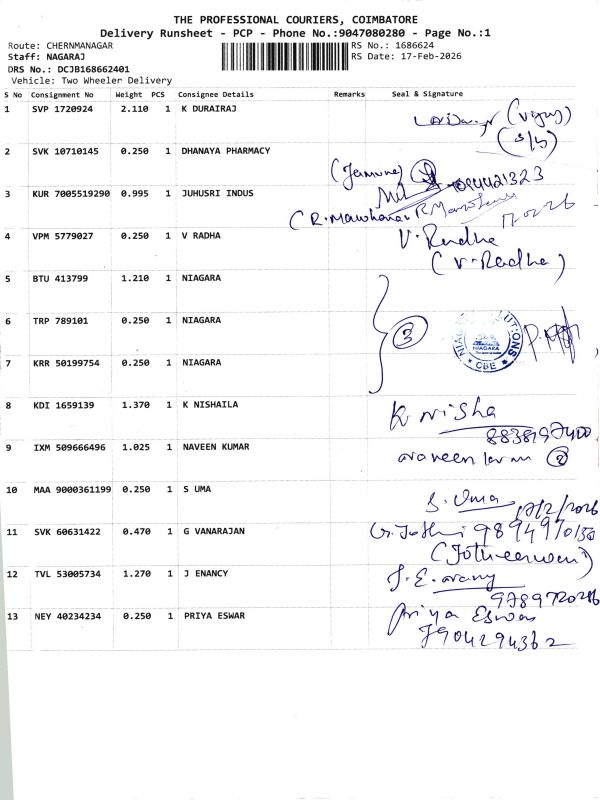 THE PROFESSIONAL COURIERS, COIMBATORE
Delivery Runsheet - PCP - Phone No.:9047080280 - Page No.:1
Route: CHERNMANAGAR
RS No.: 1686624
Staff: NAGARAJ
RS Date: 17-Feb-2026
DRS No.: DCJB168662401
Vehicle: Two Wheeler Delivery
S No Consignment No Weight PCS Consignee Details Remarks Seal & Signature
1 SVP 1720924 2.110 1 K DURAIRAJ
2 SVK 10710145 0.250 1 DHANAYA PHARMACY
3 KUR 7005519290 0.995 1 JUHUSRI INDUS
4 VPM 5779027 0.250 1 V RADHA
V. Radha
(V. Radha)
5 BTU 413799 1.210 1 NIAGARA
6 TRP 789101 0.250 1 NIAGARA
3
NIAGARA
CBE
7 KRR 50199754 0.250 1 NIAGARA
8 KDI 1659139 1.370 1 K NISHAILA
K nisha
9 IXM 509666496 1.025 1 NAVEEN KUMAR
10 MAA 9000361199 0.250 1 S UMA
S. Uma 17/2/2026
11 SVK 60631422 0.470 1 G VANARAJAN
12 TVL 53005734 1.270 1 J ENANCY
13 NEY 40234234 0.250 1 PRIYA ESWAR
Priya Eswar
7904294362